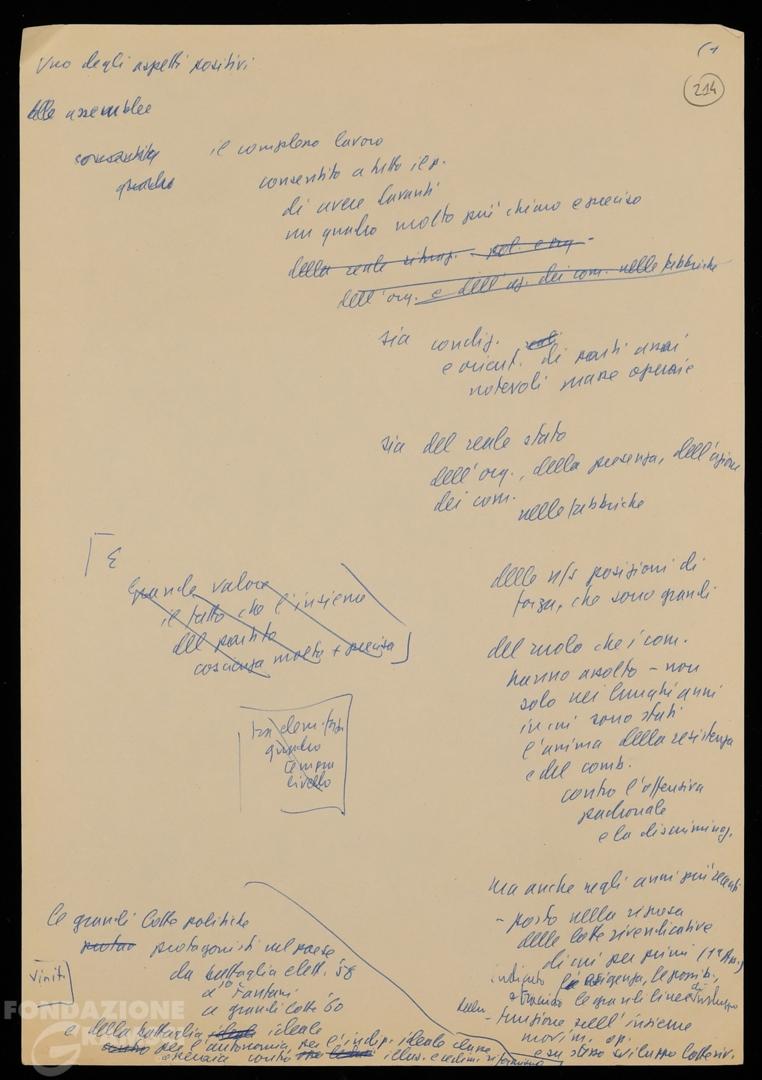 Uno degli aspetti positivi
(1
214
delle assemblee
consentita
quadro
il complesso lavoro
consentito a tutto il p.
di avere davanti
un quadro molto più chiaro e preciso
della reale situaz. pol. e org.
dell'org. e dell'az. dei com. nelle fabbriche
sia condiz.
e orient. di parti assai
notevoli masse operaie
sia del reale stato
dell'org., della presenza, dell'azione
dei com.
nelle fabbriche
E
grande valore
il fatto che l'insieme
del partito
coscienza molto + precisa
delle n/s posizioni di
forza, che sono grandi
del ruolo che i com.
hanno assolto - non
solo nei lunghi anni
in cui sono stati
l'anima della resistenza
e del comb.
contro l'offensiva
padronale
e la discriminaz.
quadro
livello
ma anche negli anni più recenti
- posto nella ripresa
delle lotte rivendicative
di cui per primi
le grandi linee di sviluppo
- funzione nell'insieme
movim. op.
e su stesso sviluppo lotte riv.
le grandi lotte politiche
protagonisti nel paese
da battaglia elett. 58
a Fanfani
a grandi lotte 60
Viniti
e della battaglia ideale
per l'autonomia, per l'indip. ideale classe
operaia contro illus.
FONDAZIONE
GRAMSCI